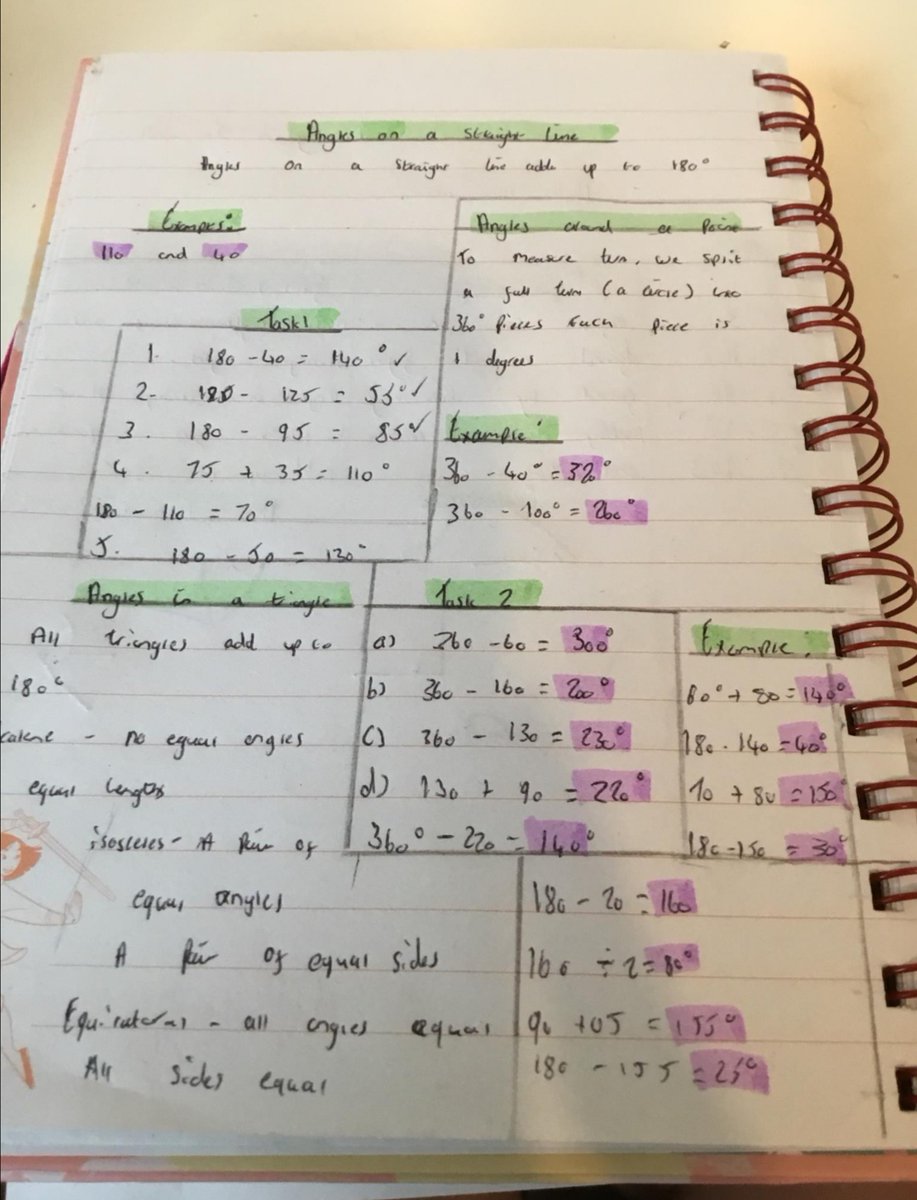 Angles on a Straight Line
Angles on a Straight line adds up to 180°
Examples:
110 and 40
Task 1
1. 180 - 40 = 140° ✓
2. 180 - 125 = 55° ✓
3. 180 - 95 = 85° ✓
4. 75 + 35 = 110°
180 - 110 = 70°
5. 180 - 50 = 130°
Angles around a Point
To measure turn, we split
a full turn (a circle) into
360° Pieces Each piece is
1 degrees
Example:
360 - 40° = 320°
360 - 100° = 260°
Angles in a triangle
All triangles add up to
180°
calene - no equal angles
equal lengths
isosceles - A Pair of
equal angles
A Pair of equal sides
Equilateral - all angles equal
All sides equal
Task 2
a) 360 - 60 = 300°
b) 360 - 160 = 200°
c) 360 - 130 = 230°
d) 130 + 90 = 220°
360° - 220 = 140°
Example:
60° + 80 = 140°
180 - 140 = 40°
70 + 80 = 150°
180 - 150 = 30°
180 - 20 = 160
160 ÷ 2 = 80°
90 + = 155°
180 - 155 = 25°